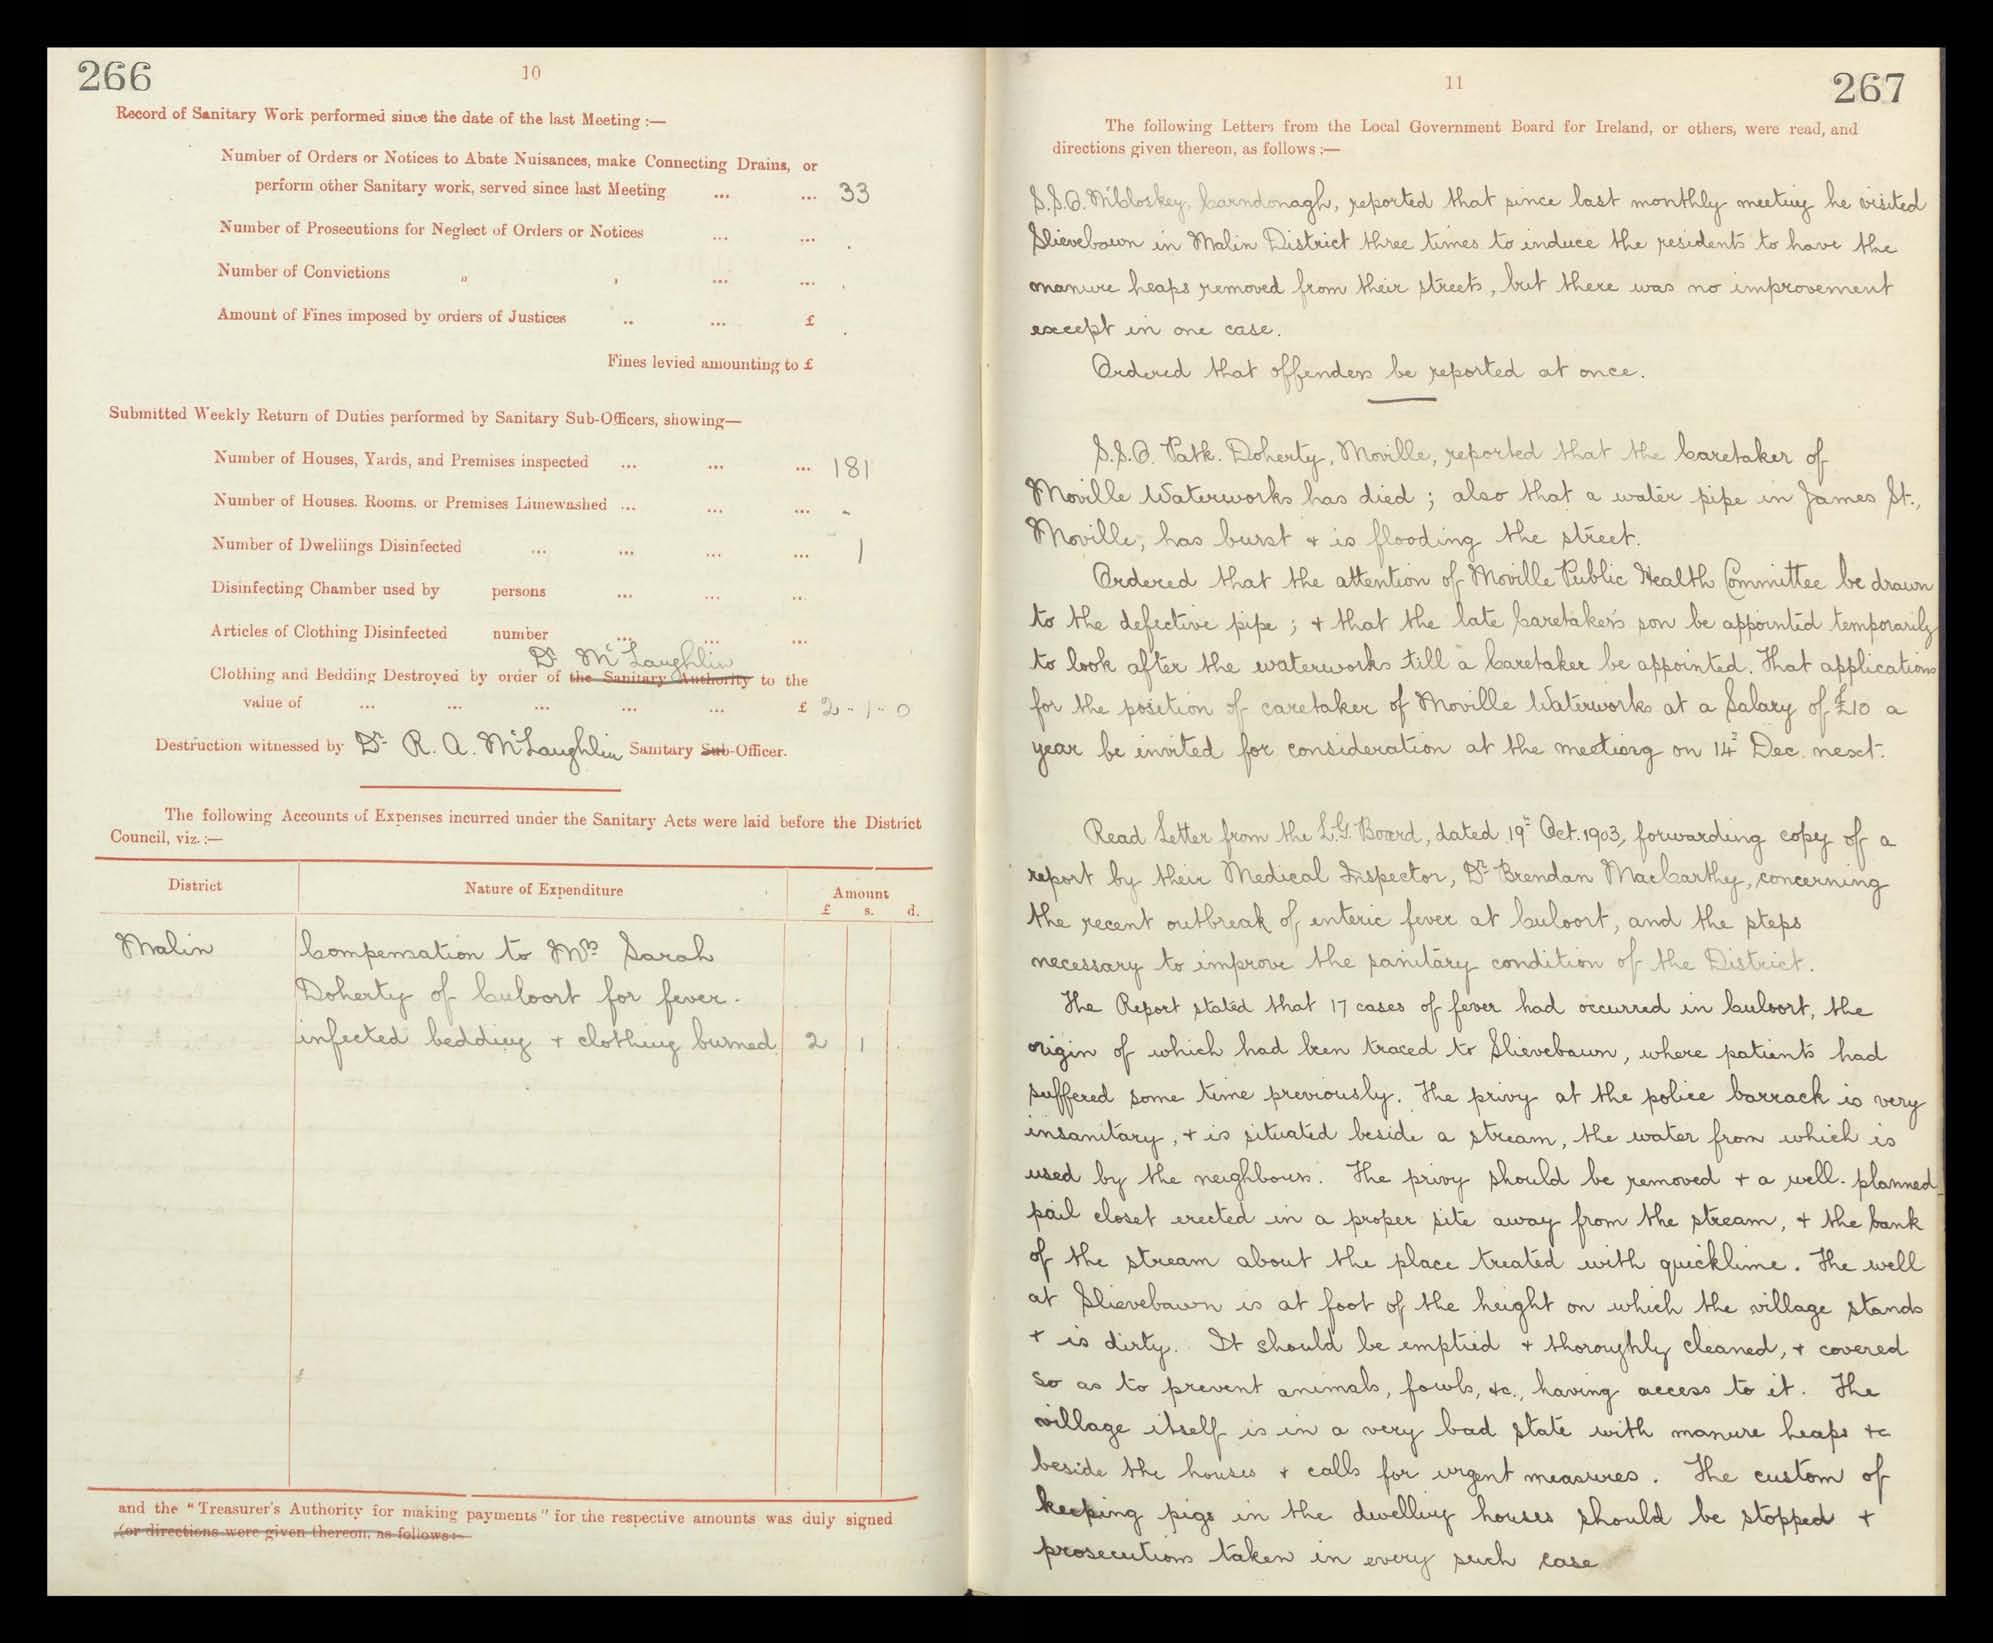 266
10
Record of Sanitary Work performed since the date of the last Meeting :—
Number of Orders or Notices to Abate Nuisances, make Connecting Drains, or
perform other Sanitary work, served since last Meeting ... ... 33
Number of Prosecutions for Neglect of Orders or Notices ... ... .
Number of Convictions „ , ... ... .
Amount of Fines imposed by orders of Justices .. ... £ .
Fines levied amounting to £
Submitted Weekly Return of Duties performed by Sanitary Sub-Officers, showing—
Number of Houses, Yards, and Premises inspected ... ... ... 181
Number of Houses. Rooms. or Premises Limewashed ... ... ... -
Number of Dwellings Disinfected ... ... ... ... 1
Disinfecting Chamber used by persons ... ... ...
Articles of Clothing Disinfected number ... ... ...
Dr McLaughlin
Clothing and Bedding Destroyed by order of the Sanitary Authority to the
value of ... ... ... ... ... £ 2 - 1 - 0
Destruction witnessed by Dr R. A. McLaughlin Sanitary Sub-Officer.
The following Accounts of Expenses incurred under the Sanitary Acts were laid before the District
Council, viz. :—
District Nature of Expenditure Amount
£ s. d.
Malin Compensation to Mrs Sarah
Doherty of Culoort for fever-
infected bedding + clothing burned 2 1 .
and the "Treasurer's Authority for making payments" for the respective amounts was duly signed
(or directions were given thereon, as follows:-
11
267
The following Letters from the Local Government Board for Ireland, or others, were read, and
directions given thereon, as follows :—
S.S.O. McCloskey, Carndonagh, reported that since last monthly meeting he visited
Slievebawn in Malin District three times to induce the residents to have the
manure heaps removed from their streets, but there was no improvement
except in one case.
Ordered that offenders be reported at once.
S.S.O. Patk. Doherty, Moville, reported that the Caretaker of
Moville Waterworks has died ; also that a water pipe in James St.,
Moville, has burst + is flooding the street.
Ordered that the attention of Moville Public Health Committee be drawn
to the defective pipe ; + that the late Caretaker's son be appointed temporarily
to look after the waterworks till a Caretaker be appointed. That applications
for the position of caretaker of Moville Waterworks at a Salary of £10 a
year be invited for consideration at the meeting on 14th Dec. next.
Read Letter from the L.G. Board, dated 19th Oct. 1903, forwarding copy of a
report by their Medical Inspector, Dr Brendan MacCarthy, concerning
the recent outbreak of enteric fever at Culoort, and the steps
necessary to improve the sanitary condition of the District.
The Report stated that 17 cases of fever had occurred in Culoort, the
origin of which had been traced to Slievebawn, where patients had
suffered some time previously. The privy at the police barrack is very
insanitary, + is situated beside a stream, the water from which is
used by the neighbours. The privy should be removed + a well-planned
pail closet erected in a proper site away from the stream, + the bank
of the stream about the place treated with quicklime. The well
at Slievebawn is at foot of the height on which the village stands
+ is dirty. It should be emptied + thoroughly cleaned, + covered
so as to prevent animals, fowls, &c., having access to it. The
village itself is in a very bad state with manure heaps &c
beside the houses + calls for urgent measures. The custom of
keeping pigs in the dwelling houses should be stopped +
prosecutions taken in every such case